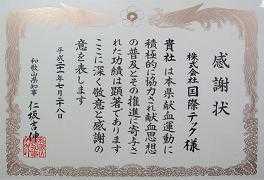 感謝状
株式会社国際テック様
貴社は本県献血運動に
積極的に協力され献血思想
の普及とその推進に寄与さ
れた功績は顕著であります
ここに深く敬意と感謝の
意を表します
平成二十一年七月二十八日
和歌山県知事 仁坂吉伸